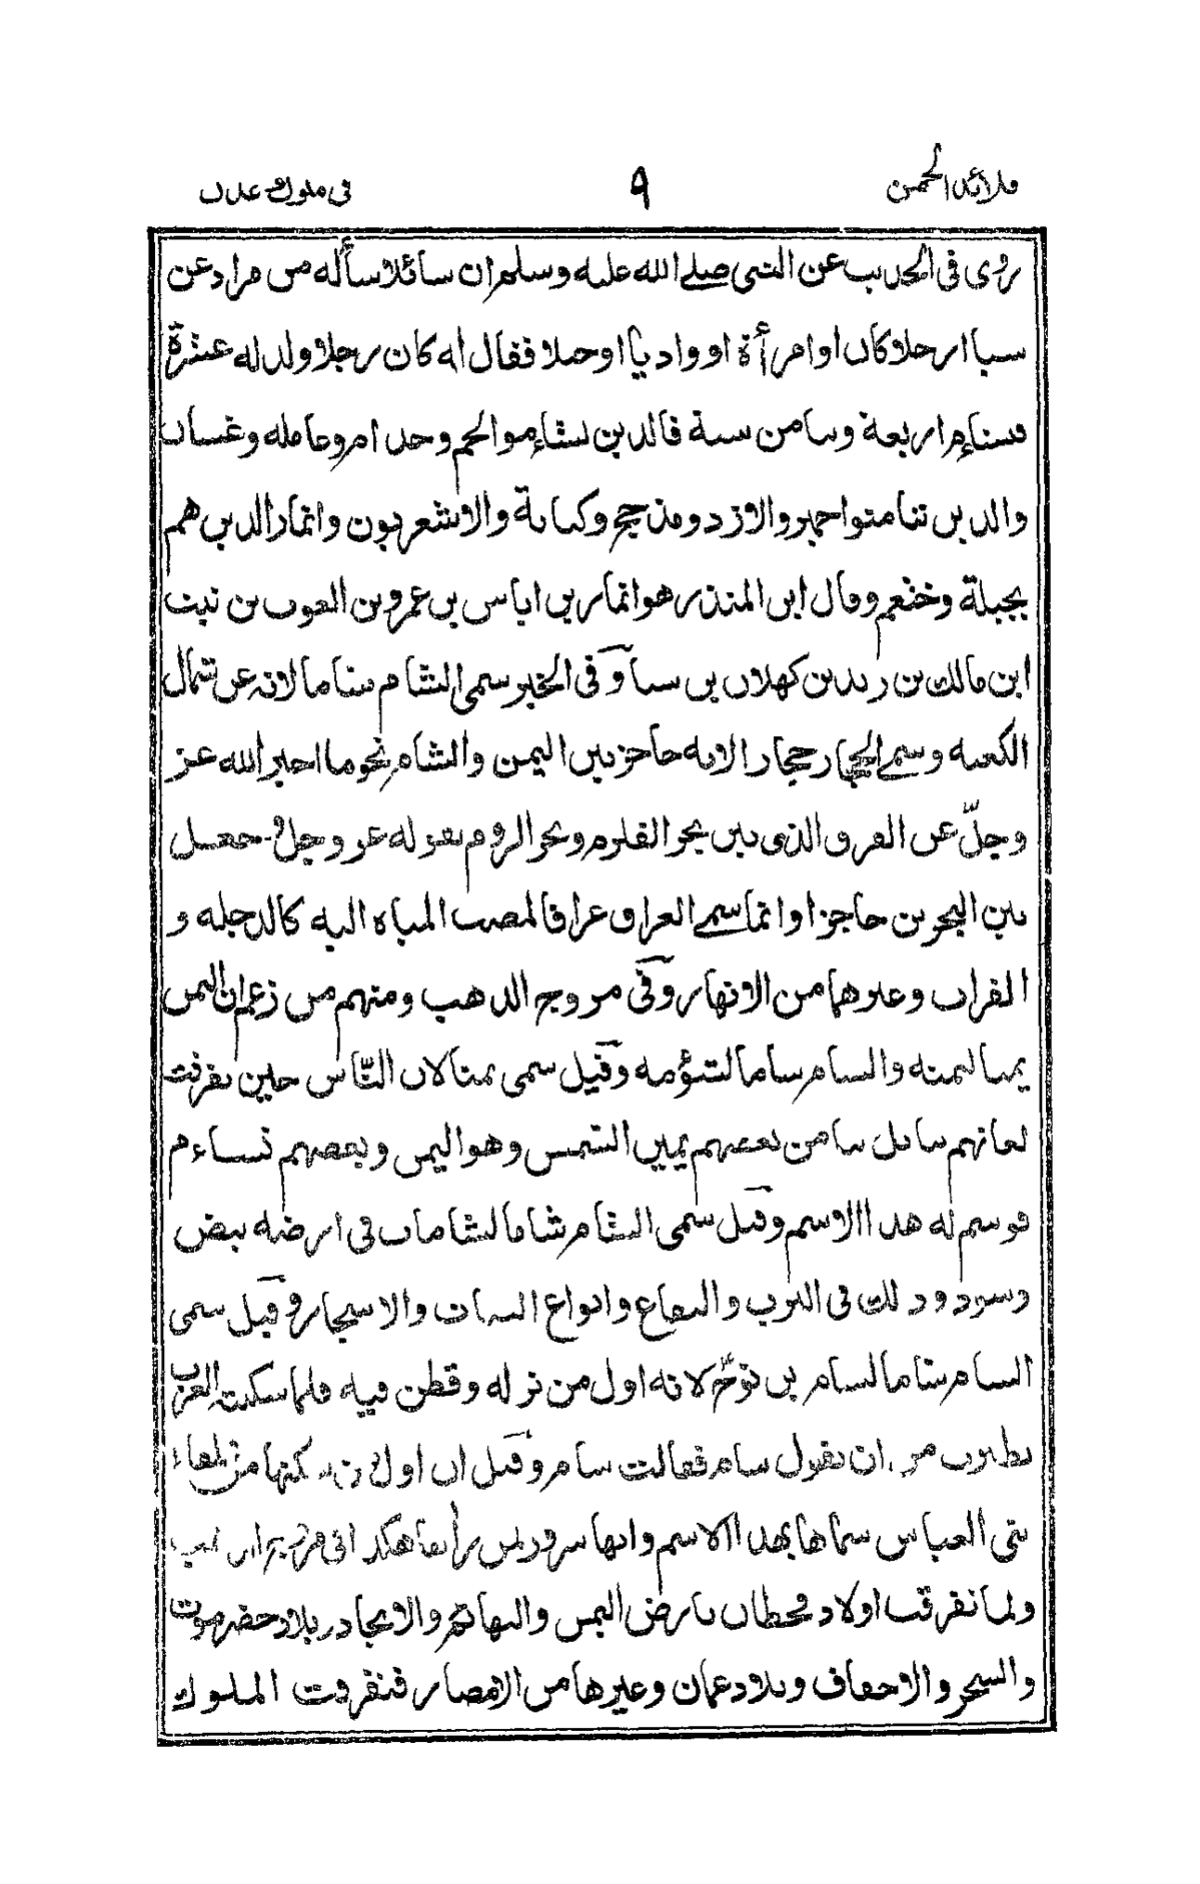 قلائد الجمن ٩ فى ملوك عدن
روى فى الحديث عن النبى صلے الله عليه وسلم ان سائلا سأله من مراد عن
سبا ارجلا كان او امرأة او واديا او جبلا فقال انه كان رجلا ولد له عشرة
فتشاءم اربعة وتيامن ستة فالذين تشاءموا لخم وجذام وعامله وغسان
والذين تيامنوا حمير والازد ومذحج وكنانة والاشعريون وانمار الذين هم
بجيلة وخثعم وقال ابن المنذر هو انمار بن اياس بن عمرو بن الغوث بن نبت
ابن مالك بن زيد بن كهلان بن سبا وفى الخبر سمى الشام شاما لانه عن شمال
الكعبه وسمے الحجاز حجازا لانه حاجز بين اليمن والشام نحو ما اخبر الله عز
وجلّ عن الفرق الذى بين بحر القلزم وبحر الروم بقوله عز وجل وجعل
بين البحرين حاجزا وانما سمے العراق عراقا لمصب المياه اليه كالدجله و
الفرات وغيرهما من الانهار وفى مروج الذهب ومنهم من زعم ان اليمن
يمنا ليمنه والشام شاما لشؤمه وقيل سمى يمنا لان النّاس حين تفرقت
لغاتهم ببابل تيامن بعضهم يمين الشمس وهو اليمن وبعضهم تشاءم
فوسم له هذا الاسم وقيل سمى الشام شاما لشامات فى ارضه بيض
وسود وذلك فى الترب والبقاع وانواع النبات والاشجار وقيل سمى
الشام شاما لسام بن نوح لانه اول من نزله وقطن فيه فلما سكنته العرب
تطيرت من ان تقول سام فقالت شام وقيل ان اول من
بنى العباس سماها بهذا الاسم وانها سرور لمن رأى
ولما تفرقت اولاد قحطان بارض اليمن والتهائم والانجاد ببلاد حضرموت
والشحر والاحقاف وبلاد عمان وغيرها من الامصار فتفرقت الملوك